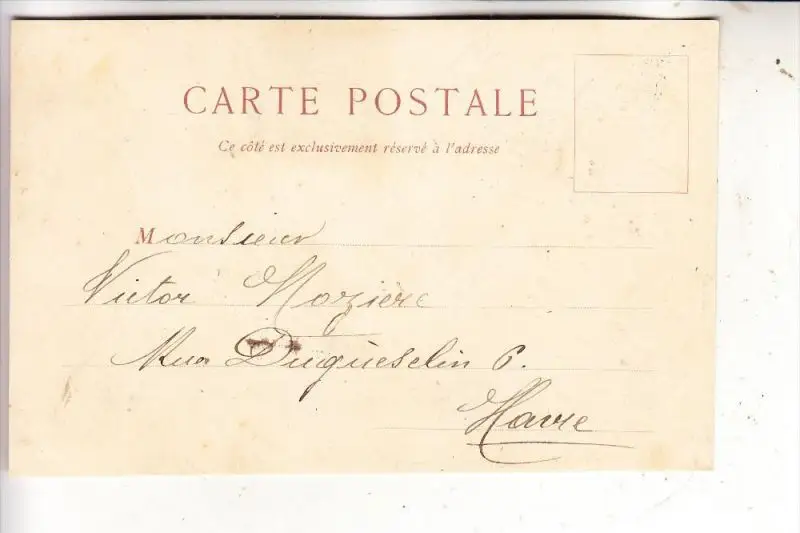 CARTE POSTALE
Ce côté est exclusivement réservé à l'adresse
Monsieur
Victor Mozière
Rue Duguesclin 6.
Havre